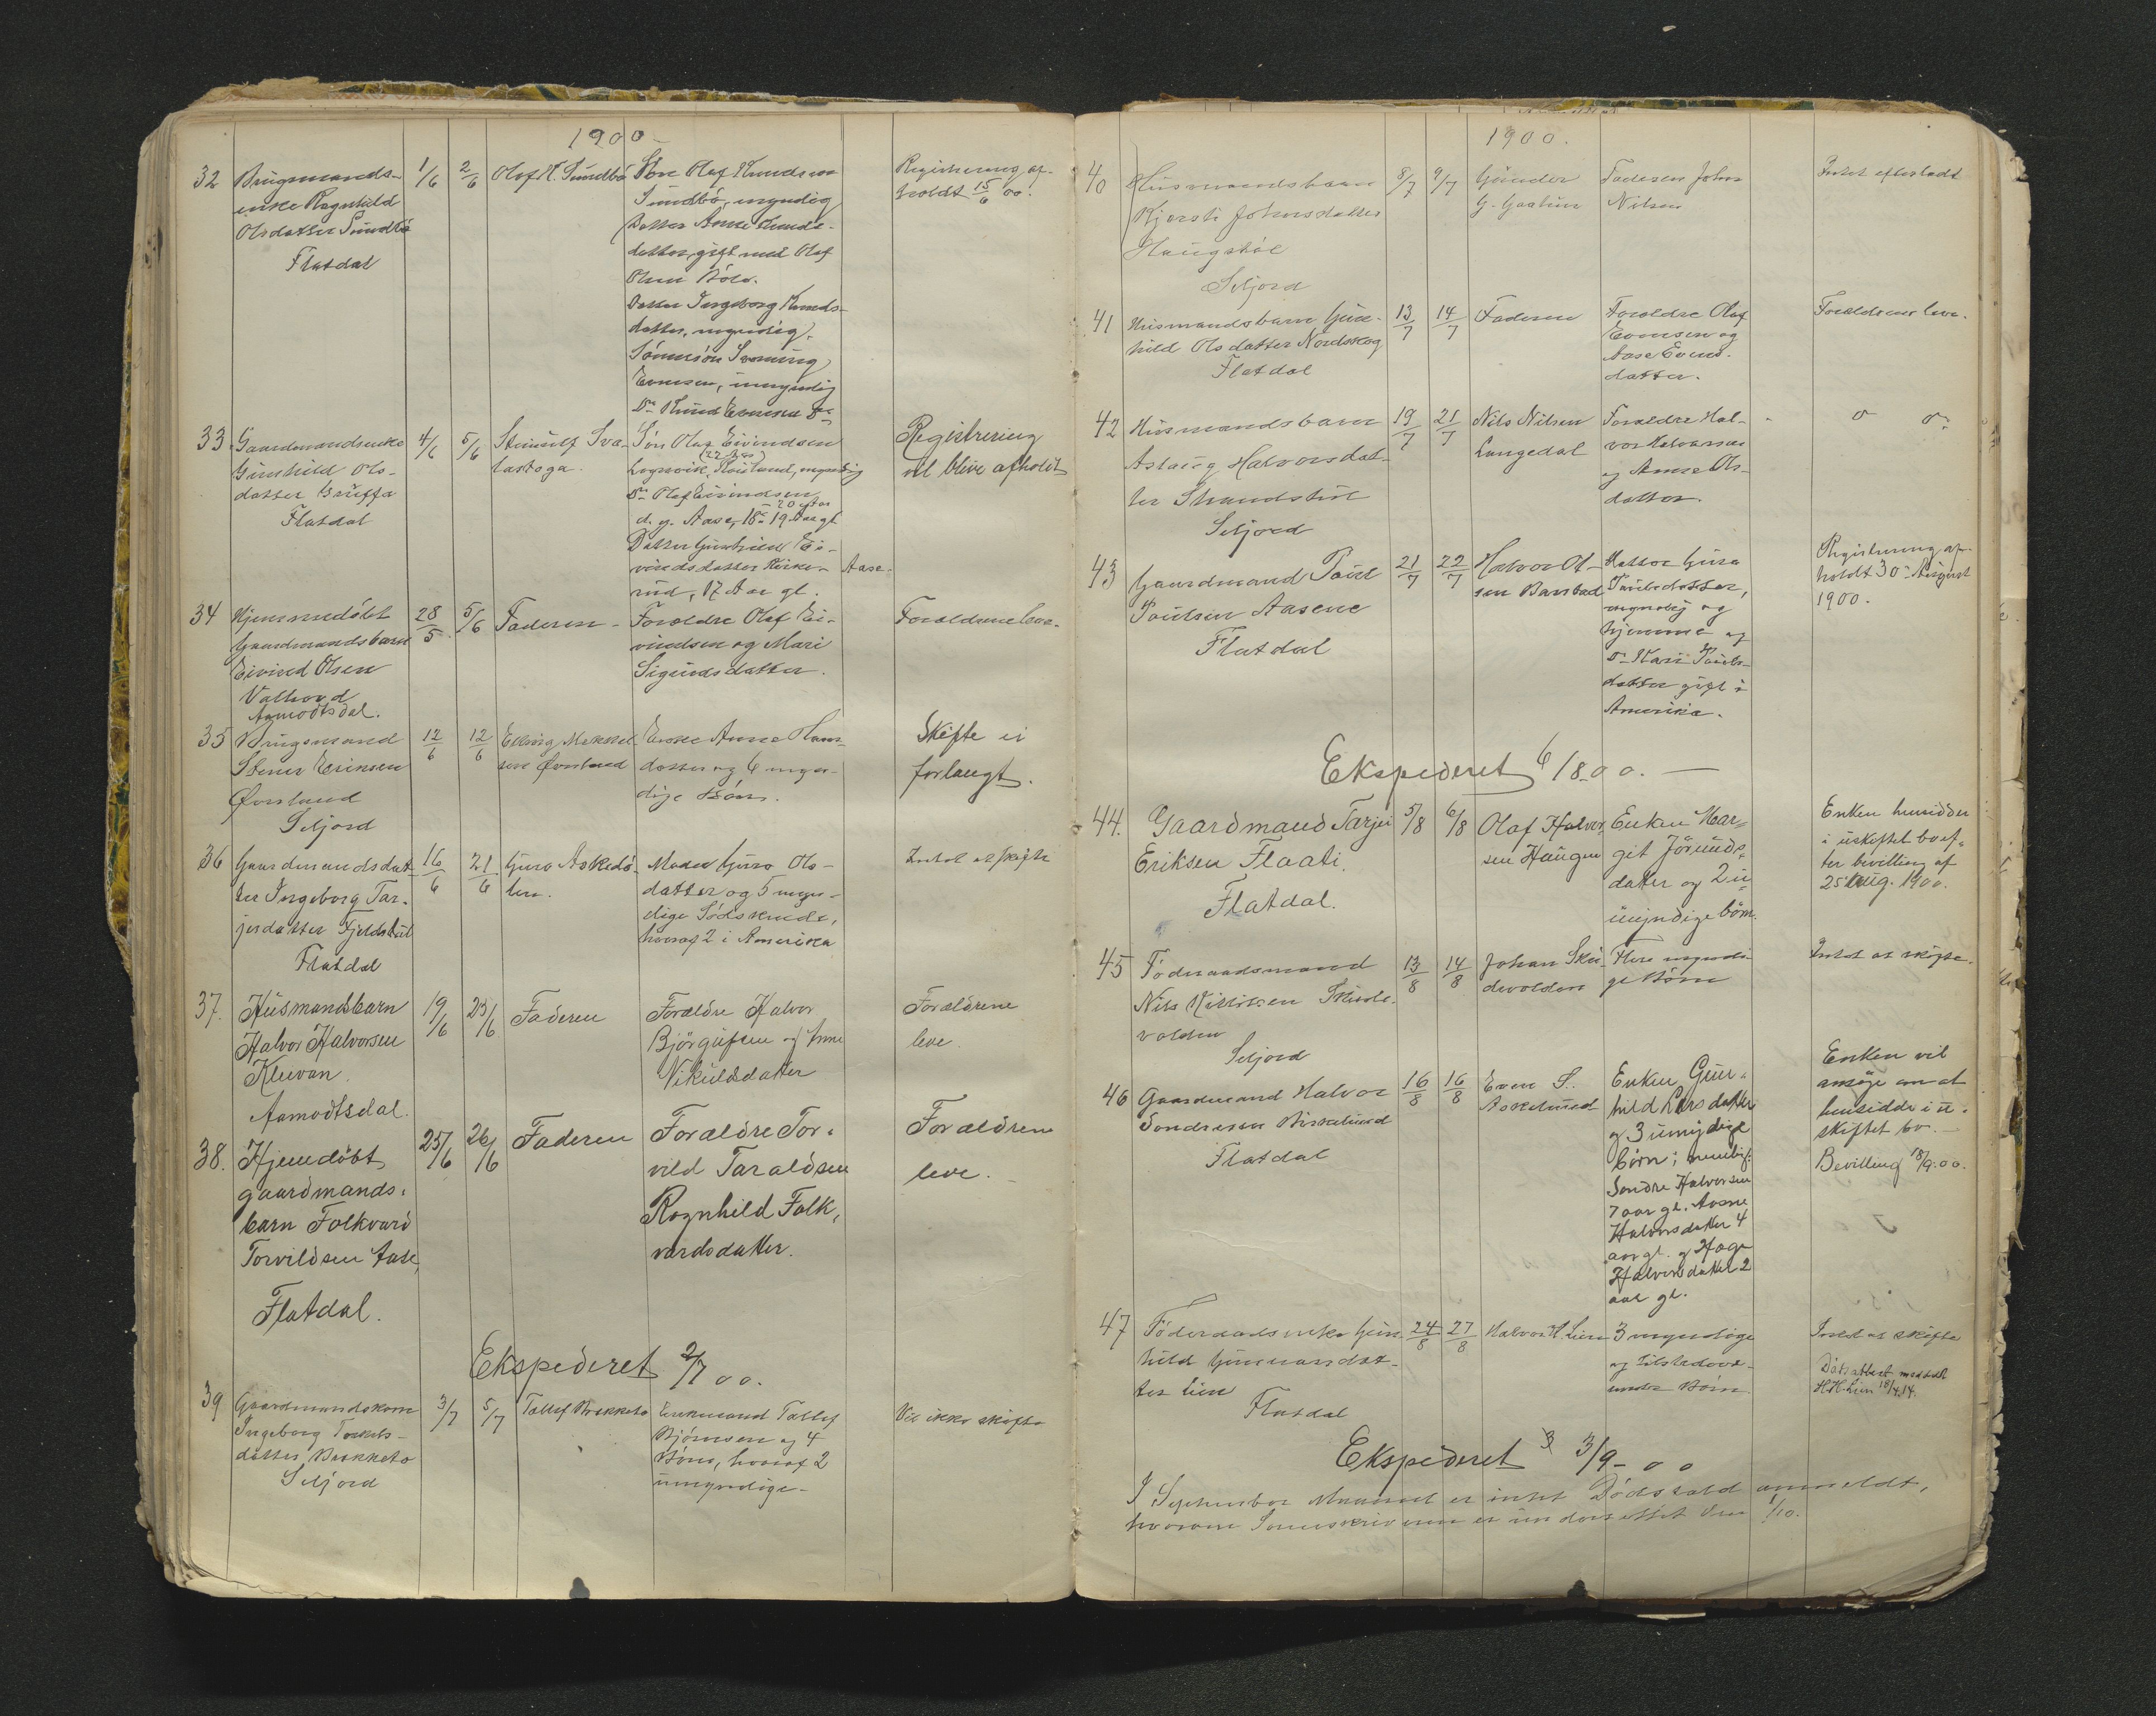 1900
32 Brugmands-
enke Ragnhild
Olsdatter Sundbö
Flatdal
1/6 2/6 Olaf K. Sundbö
Sön Olaf Knudsen
Sundbö, myndig
Datter Anne Knuds-
datter, gift med Olaf
Olsen
Datter Ingeborg Knuds-
datter, myndig.
Sönnesön
Evensen, umyndig
Do Knud Evensen Do
Registrering af-
holdt 15/6 00.
33 Gaardmandsenke
Gunhild Ols-
datter
Flatdal
4/6 5/6 Steinulf Sva-
lastoga.
Sön Olav Eivindsen
(22 Aar)
myndig
Do Olaf Eivindsen
20 Aar
d. y. Aase, 18 - 19 Aar gl
Datter Ei-
vindsdatter Aase.
rud, 17 Aar gl.
Registrering
vil blive afholdt
34 Hjemmedöbt
Gaardmandsbarn
Eivind Olsen
Valhovd
Aamodtsdal.
28/5 5/6 Faderen -
Foreldre Olaf Ei-
vindsen og Mari
Sigurdsdatter.
Foreldrene leve.
35 Brugsmand
Stener Eriksen
Överland
Seljord
12/6 12/6
Överland
Enke Anne Hans-
datter og 6 myn-
dige Börn.
Skifte ei
forlangt.
36 Gaardmandsdat-
ter Ingeborg Tar-
jeisdatter Fjeldstul
Flatdal
16/6 21/6 Guro Askeda-
len.
Moder Guro Ols-
datter og 5 myn-
dige Södskende,
hvoraf 2 i Amerika
Intet at skifte
37. Husmandsbarn
Halvor Halvorsen
Kluvan.
Aamodtsdal.
19/6 25/6 Faderen
Forældre Halvor
Björgufsen og Anne
Nikulsdatter
Forældrene
leve.
38. Hjemedöbt
gaardmands-
barn Folkvard
Torvildsen Aase,
Flatdal.
25/6 26/6 Faderen
Forældre Tor-
vild Taraldsen
Ragnhild Folk-
vardsdatter.
Forældrene
leve.
Ekspederet 2/7 00.
39 Gaardmandskone
Ingeborg Torkels-
datter Brekketo
Seljord
3/7 5/7 Tallef Brekketo
Enkemand Tallef
Björnsen og 4
Börn, hvoraf 2
umyndige -
Vil ikke skifte
1900.
40 Husmandsbarn
Kjersti Johnsdatter
Haugstöl
Seljord
8/7 9/7 Gunder
G. Gaatun
Faderen John
Nilsen
Intet efterladt
41 Husmandsbarn Gun-
hild Olsdatter Nordskog
Flatdal
13/7 14/7 Faderen
Foreldre Olaf
Evensen og
Aase Evens-
datter.
Foreldrene leve.
42 Husmandsbarn
Aslaug Halvorsdat-
ter Strandstul
Seljord
19/7 21/7 Nils Nilsen
Langedal
Foreldre Hal-
vor Halvorsen
og Anne Ols-
datter.
43 Gaardmand Paul
Paulsen Aasene
Flatdal
21/7 22/7 Halvor Ol-
sen Barstad
Datter Guro
Paulsdatter,
myndig og
hjemme og
Do Kari Pauls-
datter gift i
Amerika.
Registrering af-
holdt 30te August
1900.
Ekspederet 6/8 00. -
44. Gaardmand Tarjei
Eriksen Flaati.
Flatdal.
5/8 6/8 Olaf Halvor-
sen Haugen
Enken Mar-
git Jörunds-
datter og 2 u-
umyndige börn.
Enken hensidder
i uskiftet bo ef-
ter bevilling af
25 Aug. 1900.
45 Föderaadsmand
Nils Kittilsen Skurde-
volden
Seljord
13/8 14/8 Johan Skur-
devolden
Flere myndi-
ge Börn
Intet at skifte.
46 Gaardmand Halvor
Sondresen
Flatdal
16/8 16/8 Even S.
Enken Gun-
hild Larsdatter
og 3 umyndige
börn; nemlig:
Sondre Halvorsen
7 aar gl. Aasne
Halvorsdatter 4
aar gl. og Hage
Halvorsdatter 2
aar gl.
Enken vil
ansöge om at
hensidde i u-
skiftet bo. -
Bevilling 18/9.00.
47 Föderaadsenke Gun-
hild Gunnarsdat-
ter Lien
Flatdal
24/8 27/8 Halvor H. Lien
3 myndige
og tilstedevæ-
rende Börn
Intet at skifte
Dödsattest meddelt
H.H. Lien 18/4.14.
Ekspederet 3/9 - 00
I September Maaned er intet Dödsfald anmeldt,
hvorom Sorenskriveren er underrettet den 1/10.